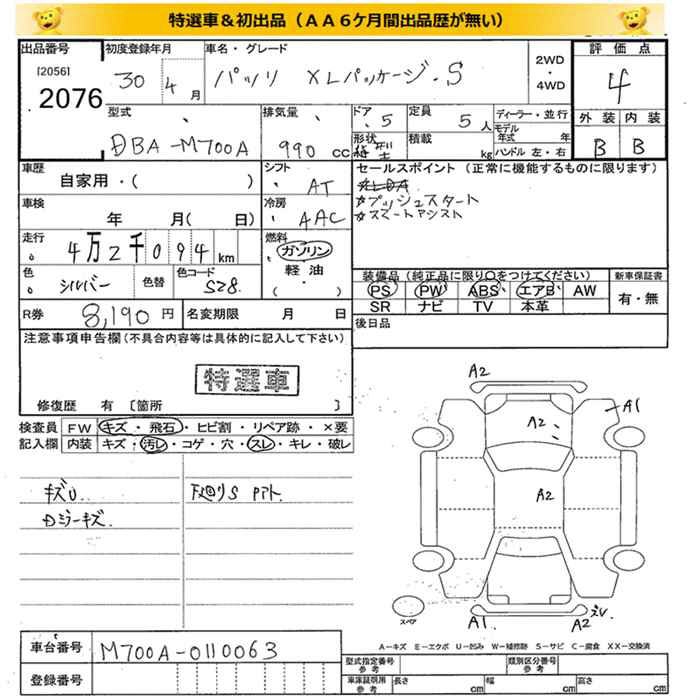 特選車＆初出品（ＡＡ６ケ月間出品歴が無い）
出品番号 初度登録年月 車名・グレード 2WD・4WD 評価点
[2056] 2076 30年4月 パッソ XLパッケージ・S 4
型式 排気量 ドア 定員 ディーラー・並行 外装 内装
DBA-M700A 990 cc 5 5人 モデル年式 年 B B
形状 積載 kg ハンドル 左・右
車歴 シフト セールスポイント（正常に機能するものに限ります）
自家用・( ) AT
☆プッシュスタート
車検 冷房 ☆スマートアシスト
年 月( 日) AAC
走行 燃料
4万2千094 km ガソリン
軽油・
( )
色 色替 色コード 装備品（純正品に限り○をつけてください） 新車保証書
シルバー S28 PS PW ABS エアB AW 有・無
SR ナビ TV 本革
R券 8,190円 名変期限 月 日 後日品
注意事項申告欄（不具合内容等は具体的に記入して下さい）
特選車
修復歴 有 〔箇所 〕
検査員 FW キズ・飛石・ヒビ割・リペア跡・×要
記入欄 内装 キズ・汚レ・コゲ・穴・スレ・キレ・破レ
キズU
ミラーキズ
A2
A1
A2
A2
スペア
A1 A2 ズレ
A－キズ E－エクボ U－凹み W－補修跡 S－サビ C－腐食 XX－交換済
車台番号 M700A-0110063
型式指定番号 参考 類別区分番号 参考
登録番号 車庫証明用 参考 長さ cm 幅 cm 高さ cm